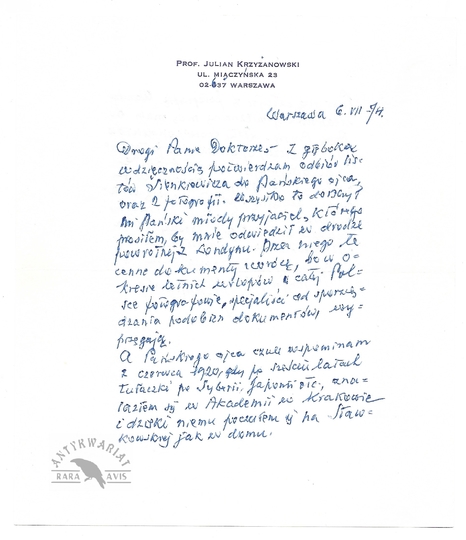 PROF. JULIAN KRZYŻANOWSKI
UL. MIĄCZYŃSKA 23
02-637 WARSZAWA
Warszawa 6. VII 74.
Drogi Panie Doktorze, Z głęboką
wdzięcznością potwierdzam odbiór lis-
tów Sienkiewicza do Pańskiego ojca,
oraz 2 fotografii. Wszystko to doręczył
mi Pański młody przyjaciel, którego
prosiłem, by mnie odwiedził w drodze
powrotnej z Londynu. Przez niego te
cenne dokumenty zwrócę, bo w o-
kresie letnich urlopów w całej Pol-
sce fotografowie, specjaliści od sporzą-
dzania podobizn dokumentów, wy-
przęgają.
A Pańskiego ojca czule wspominam
z czerwca 1920, gdy po sześciu latach
tułaczki po Syberii, Japonii etc. zna-
lazłem się w Akademii w Krakowie
i dzięki niemu poczułem się na Sław-
kowskiej jak w domu.
ANTYKWARIAT
RARA AVIS